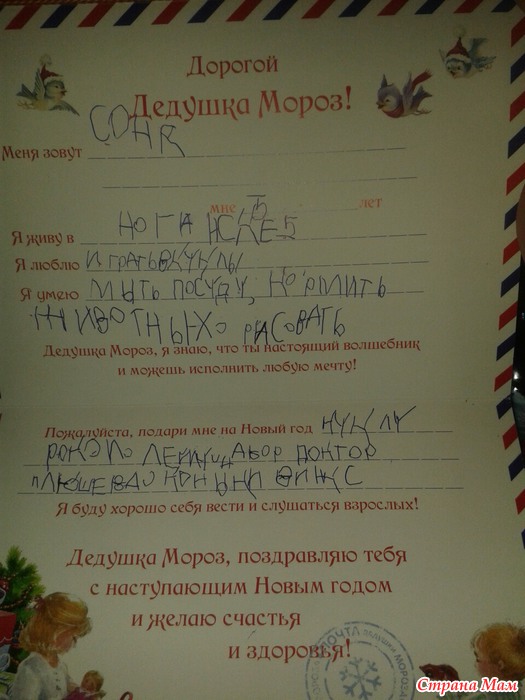 Дорогой
Дедушка Мороз!
Меня зовут СОНЯ
мне 5 лет
Я живу в НОГИНСКЕ 5
Я люблю ИГРАТЬ В КУКЛЫ
Я умею МЫТЬ ПОСУДУ, КОРМИТЬ
ЖИВОТНЫХ РИСОВАТЬ
Дедушка Мороз, я знаю, что ты настоящий волшебник
и можешь исполнить любую мечту!
Пожалуйста, подари мне на Новый год КУКЛУ
НАБОР ДОКТОР
Я буду хорошо себя вести и слушаться взрослых!
Дедушка Мороз, поздравляю тебя
с наступающим Новым годом
и желаю счастья
и здоровья!
ПОЧТА ДЕДУШКИ МОРОЗА
Страна Мам